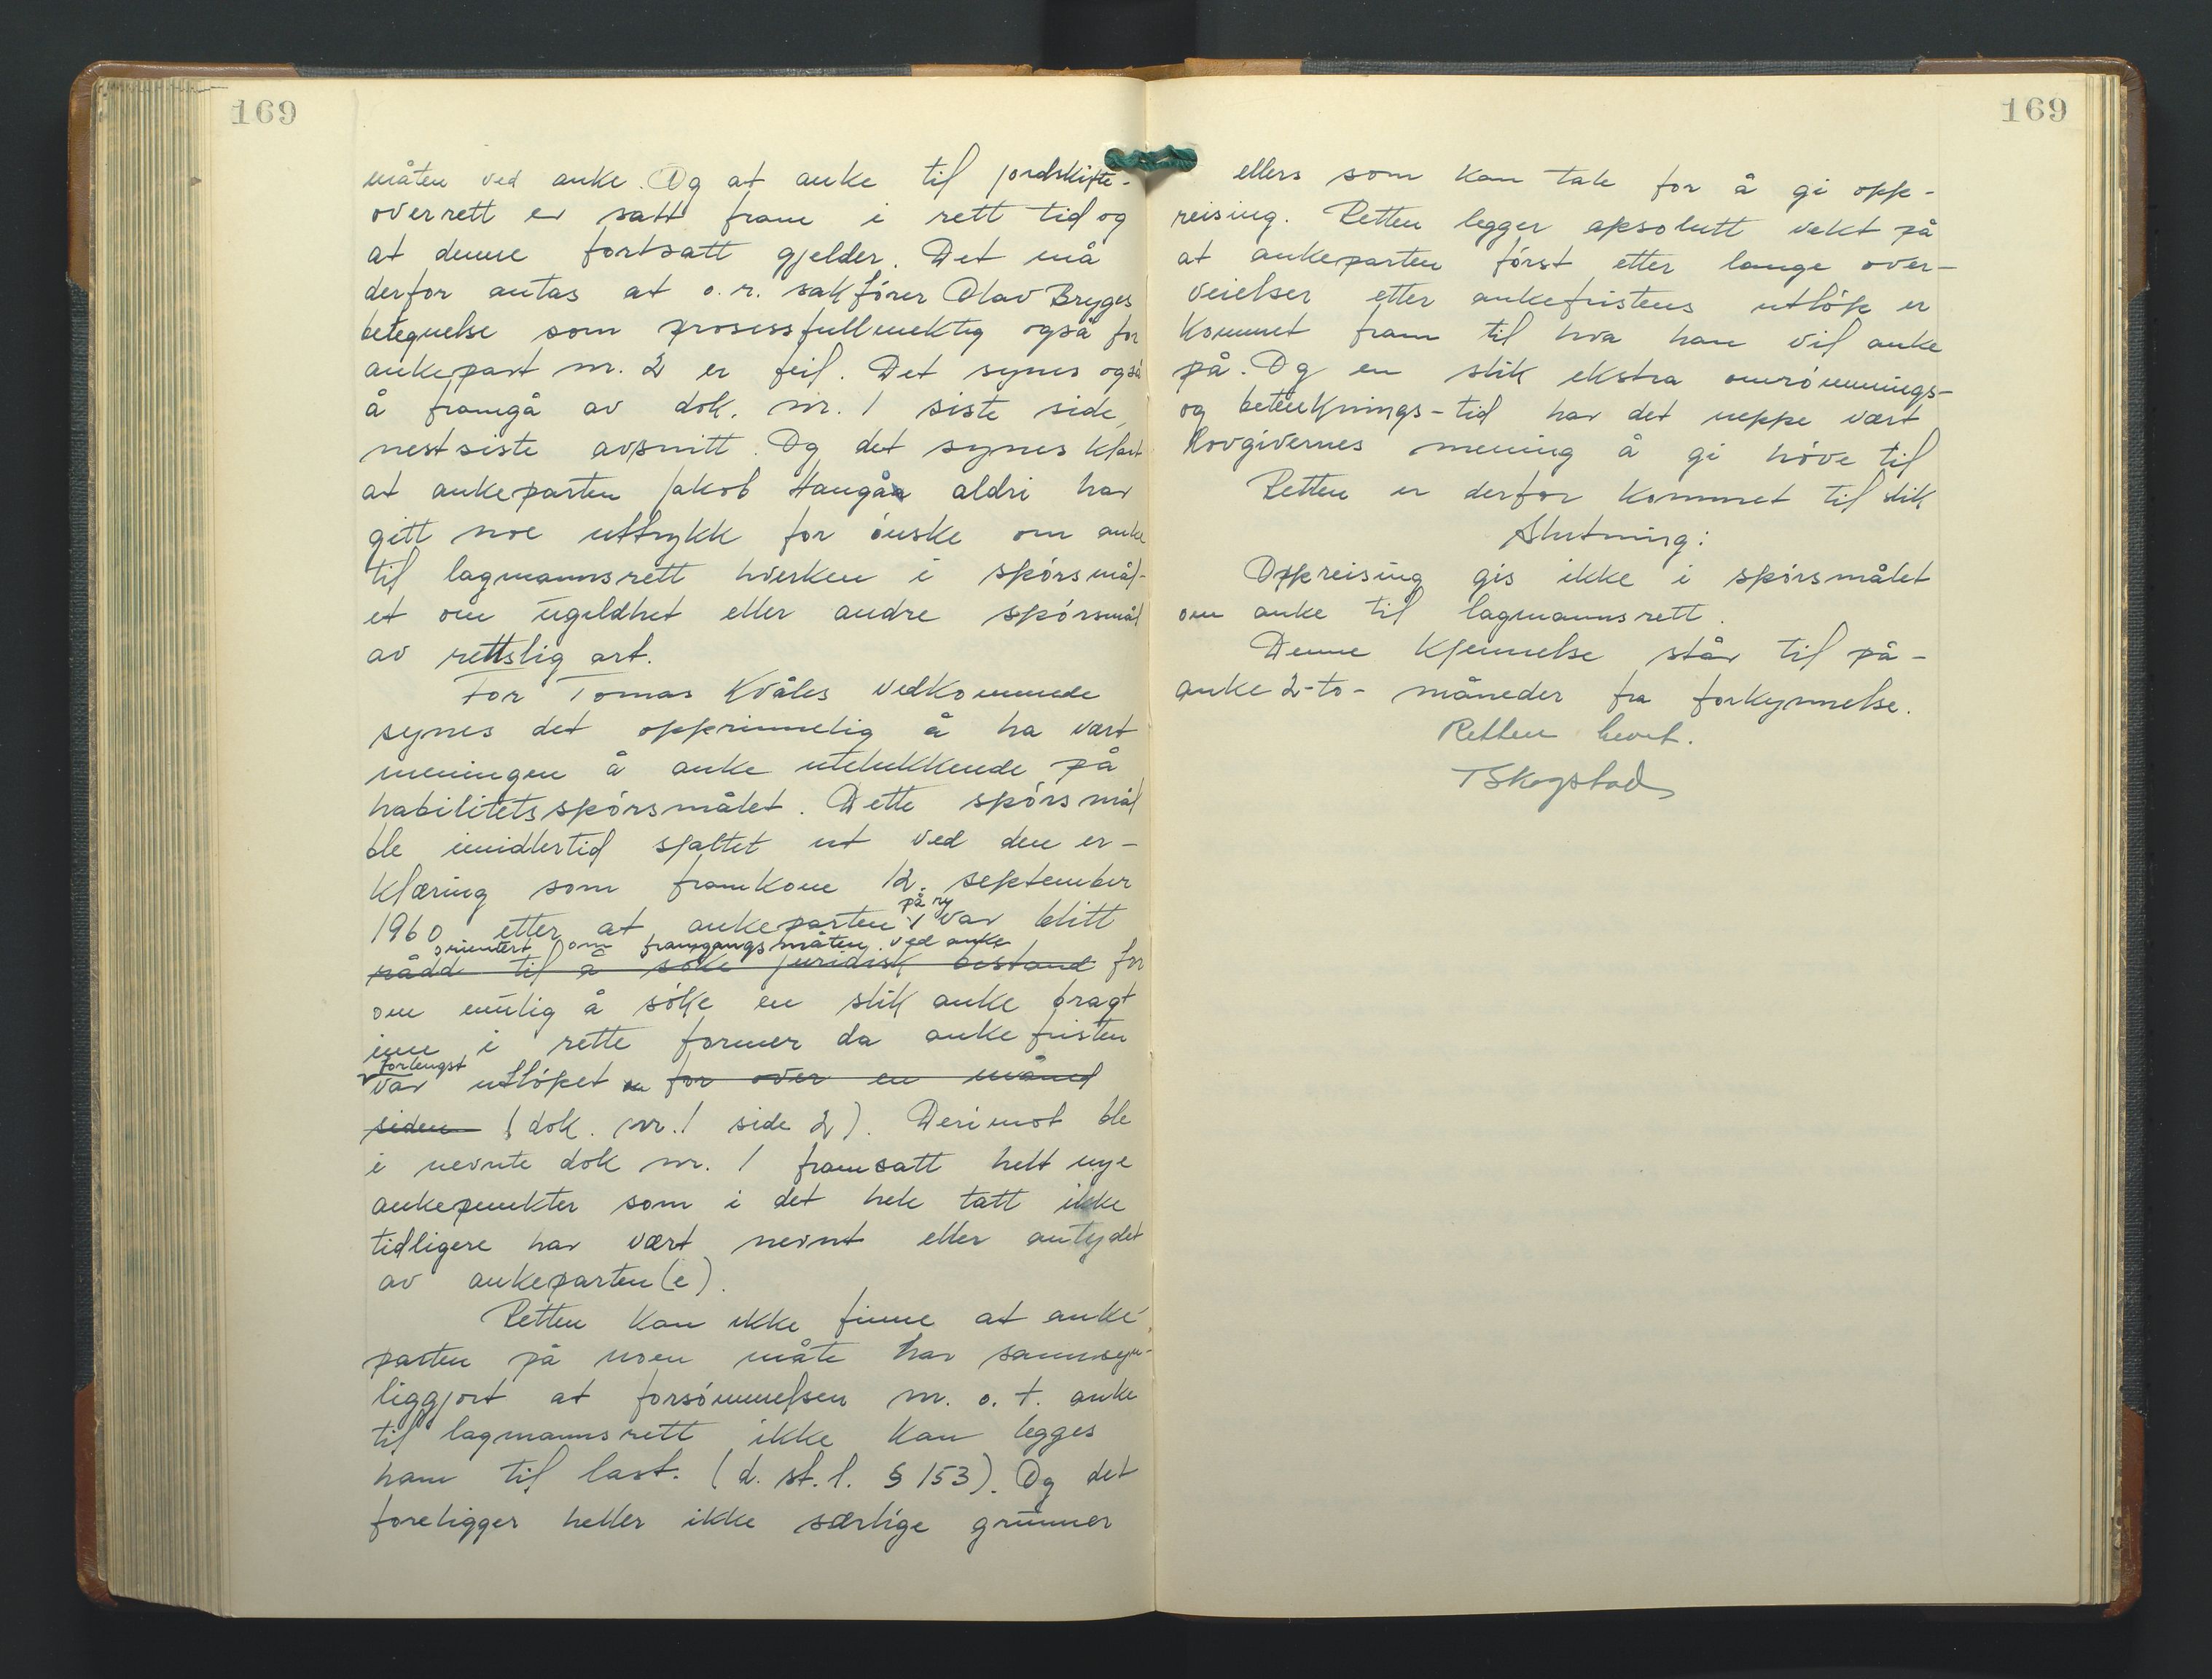 169
måten ved anke. Og at anke til jordskifte-
overrett er satt fram i rett tid og
at denne fortsatt gjelder. Det må
derfor antas at o.r. sakfører Olav Bryges
betegnelse som prosessfullmektig også for
ankepart nr. 2 er feil. Det synes også
å framgå av dok. nr. 1 siste side,
nest siste avsnitt. Og det synes klart
at ankeparten Jakob Haugåa aldri har
gitt noe uttrykk for ønske om anke
til lagmannsrett hverken i spørsmål-
et om ugildhet eller andre spørsmål
av rettslig art.
For Tomas Kvåles vedkommende
synes det opprinnelig å ha vært
meningen å anke utelukkende på
habilitetsspørsmålet. Dette spørsmål
ble imidlertid spaltet ut ved den er-
klæring som framkom 12. september
på ny
1960 etter at ankeparten var blitt
orientert om framgangsmåten ved anke
rådd til å søke juridisk bistand for
om mulig å søke en slik anke bragt
inn i rette former da ankefristen
forlengst
var utløpet for over en måned
siden (dok. nr. 1 side 2). Derimot ble
i nevnte dok nr. 1 framsatt helt nye
ankepunkter som i det hele tatt ikke
tidligere har vært nevnt eller antydet
av ankeparten(e).
Retten kan ikke finne at anke-
parten på noen måte har sannsyn-
liggjort at forsømmelsen m. o. t. anke
til lagmannsrett ikke kan legges
ham til last. (d. st. l. § 153). Og det
foreligger heller ikke særlige grunner
169
ellers som kan tale for å gi opp-
reising. Retten legger apsolutt vekt på
at ankeparten først etter lange over-
veielser etter ankefristens utløp er
kommet fram til hva han vil anke
på. Og en slik ekstra områmnings-
og betenknings-tid har det neppe vært
lovgivernes mening å gi høve til
Retten er derfor kommet til slik
Slutning:
Oppreising gis ikke i spørsmålet
om anke til lagmannsrett.
Denne kjennelse står til på-
anke 2-to- måneder fra forkynnelse.
Retten hevet.
T Skogstad